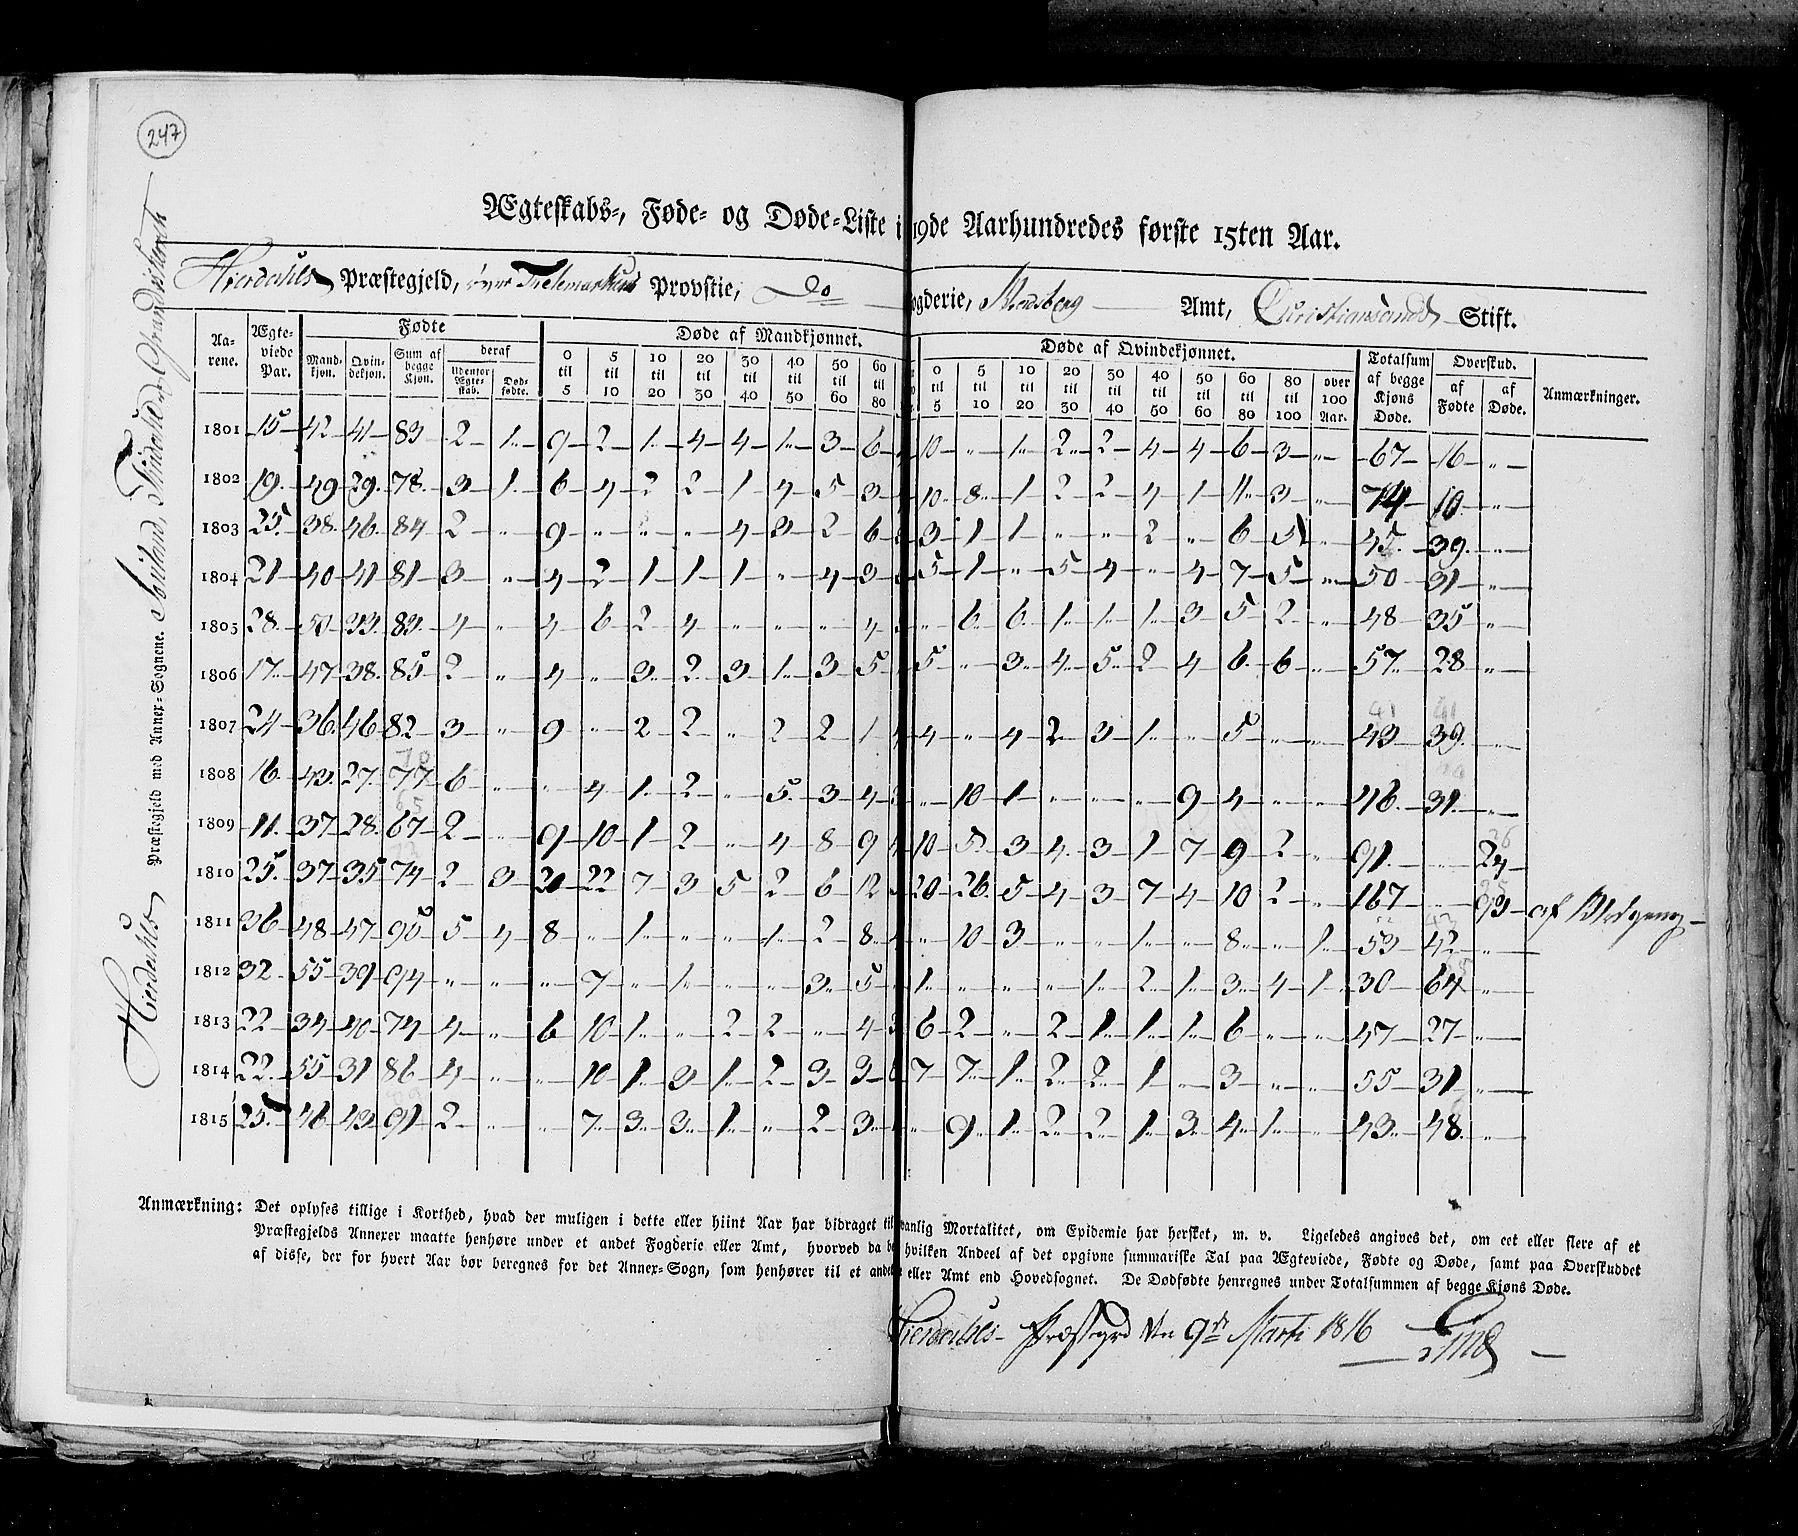 247
Ægteskabs-, Føde- og Døde-Liste i 19de Aarhundredes første 15ten Aar.
Hierdahls Præstegjeld, Provstie, Do ogderie, Amt, Christiansands Stift.
Hierdahls Præstegjeld med Annex-Sognene.
Aa-rene. Ægte-viede Par. Fødte Døde af Mandkjønnet. Døde af Qvindekjønnet. Totalsum af begge Kjøns Døde. Overskud. Anmærkninger.
Mand-kjøn. Qvin-dekjøn. Sum af begge Kjøn. deraf Udenfor Ægte-skab. Død-fødte. 0 til 5 5 til 10 10 til 20 20 til 30 30 til 40 40 til 50 50 til 60 60 til 80 0 til 5 5 til 10 10 til 20 20 til 30 30 til 40 40 til 50 50 til 60 60 til 80 80 til 100 over 100 Aar. af Fødte af Døde.
1801 15 42 41 83 2 1 9 2 1 4 4 1 3 6 10 " 1 2 2 4 4 6 3 " 67 16 "
1802 19 49 29 78 3 1 6 4 2 2 1 4 5 3 10 8 1 2 2 4 1 11 3 " 10 "
1803 25 38 46 84 2 " 9 " " " " 4 3 2 6 3 1 1 " " 2 " 6 5 " 45 39 "
1804 21 40 41 81 3 " 4 2 1 1 1 " 4 3 5 1 " 5 4 " 4 7 5 " 50 31 "
1805 28 50 33 83 4 " 4 6 2 4 " " " 4 " 6 6 1 1 1 3 5 2 " 48 35 "
1806 17 47 38 85 2 " 4 " 3 2 3 1 3 5 5 " 3 4 5 2 4 6 6 " 57 28 "
1807 24 36 46 82 3 " 9 " 2 2 " 2 2 1 4 " 4 2 3 1 " 5 " " 43 39 "
1808 16 43 27 77 6 " " 4 1 2 " 5 3 4 " 10 1 " " " 9 4 " " 46 31 "
1809 11 37 28 67 2 " 9 10 1 2 " 4 8 9 10 5 3 4 3 1 7 9 2 " 91 " 24
1810 25 37 35 74 2 3 20 22 7 3 5 2 6 12 20 26 5 4 3 7 4 10 2 " 167 " 93 af Blodgang
1811 36 48 47 95 5 4 8 " 1 " " 1 2 8 " 10 3 " " 1 " 8 " 1 53 42 "
1812 32 55 39 94 " " " 7 " 1 " " 3 5 1 " " " 1 2 1 3 4 1 30 64 "
1813 22 34 40 74 4 " 6 10 1 " 2 2 " 4 6 2 " 2 1 1 1 6 " " 47 27 "
1814 22 55 31 86 4 " " 10 1 3 1 2 3 3 7 7 1 2 2 1 " 3 " " 55 31 "
1815 25 46 43 91 2 " " 7 3 3 1 " 2 3 " 9 1 2 2 1 3 4 1 " 43 48 "
Anmærkning: Det oplyses tillige i Korthed, hvad der muligen i dette eller hiint Aar har bidraget til vanlig Mortalitet, om Epidemie har hersket, m. v. Ligeledes angives det, om eet eller flere af et
Præstegjelds Annexer maatte henhøre under et andet Fogderie eller Amt, hvorved da be hvilken Andeel af det opgivne summariske Tal paa Ægteviede, Fødte og Døde, samt paa Overskuddet
af disse, der for hvert Aar bør beregnes for det Annex-Sogn, som henhører til et andet eller Amt end Hovedsognet. De Dødfødte henregnes under Totalsummen af begge Kjøns Døde.
Hierdahls Præstgrd den 9de Marti 1816